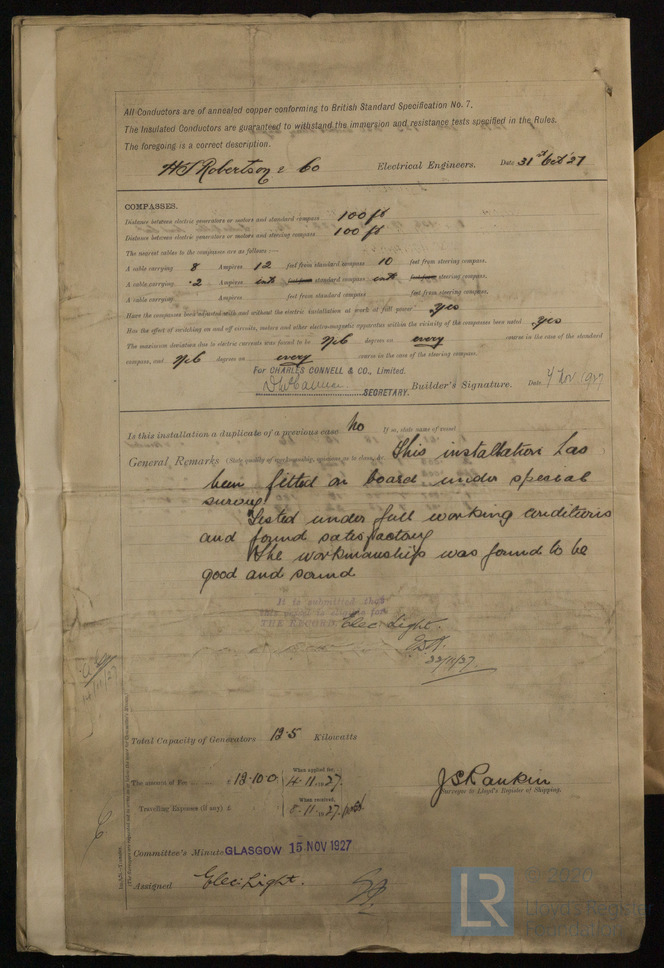 All Conductors are of annealed copper conforming to British Standard Specification No. 7.
The Insulated Conductors are guaranteed to withstand the immersion and resistance tests specified in the Rules.
The foregoing is a correct description.
Robertson & Co Electrical Engineers. Date 31st Oct 27
COMPASSES.
Distance between electric generators or motors and standard compass 100 ft
Distance between electric generators or motors and steering compass 100 ft
The nearest cables to the compasses are as follows:—
A cable carrying 8 Ampères 12 feet from standard compass 10 feet from steering compass.
A cable carrying .2 Ampères into feet from standard compass into feet from steering compass.
A cable carrying Ampères feet from standard compass feet from steering compass.
Have the compasses been adjusted with and without the electric installation at work at full power yes
Has the effect of switching on and off circuits, motors and other electro-magnetic apparatus within the vicinity of the compasses been noted yes
The maximum deviation due to electric currents was found to be Nil degrees on every course in the case of the standard
compass, and Nil degrees on every course in the case of the steering compass.
For CHARLES CONNELL & CO., Limited.
SECRETARY. Builder's Signature. Date 4 Nov 1927
Is this installation a duplicate of a previous case No If so, state name of vessel
General Remarks This installation has
been fitted on board under special
survey
Tested under full working conditions
and found satisfactory
The workmanship was found to be
good and sound
It is submitted that
this vessel is eligible for
THE RECORD. Elec. Light.
22/11/27.
14/11/27
Total Capacity of Generators 12.5 Kilowatts
The amount of Fee £ 12.10.0 When applied for, 4.11.1927.
Travelling Expenses (if any) £ When received, 8.11.1927.
J S Rankin
Surveyor to Lloyd's Register of Shipping.
Committee's Minute GLASGOW 15 NOV 1927
Assigned Elec. Light.
© 2020
LR Lloyd's Register
Foundation